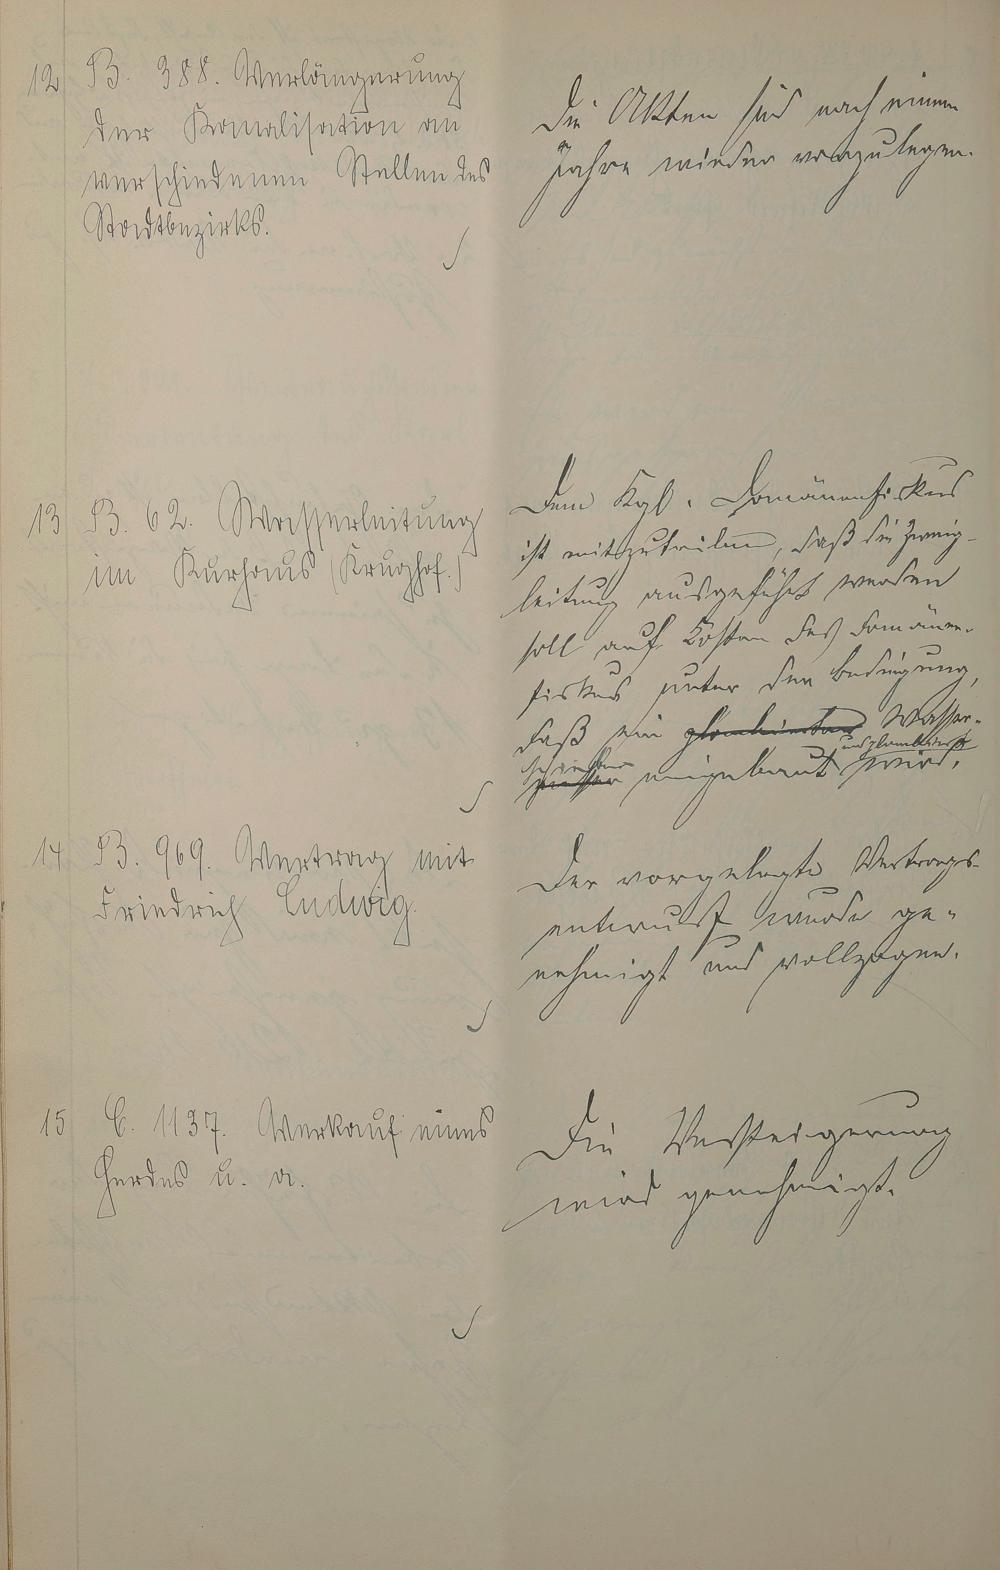 12 B. 388. Verlängerung
der Kanalisation an
verschiedenen Stellen des
Stadtbezirks.
Die Akten sind nach einem
Jahre wieder vorzulegen.
13 B. 62. Wasserleitung
im Kurhaus (Krughof.)
Dem Kgl. Domänenfiskus
ist mitzuteilen, daß die Zweig-
leitung ausgeführt werden
soll auf Kosten des Domänen-
fiskus unter der Bedingung,
daß ein plombierter Wasser-
und plombiert
messer eingebaut wird.
14 B. 969. Vertrag mit
Friedrich Ludwig.
Der vorgelegte Vertrags-
entwurf wurde ge-
nehmigt und vollzogen.
15 C. 1137. Verkauf eines
Herdes u. a.
Die Versteigerung
wird genehmigt.